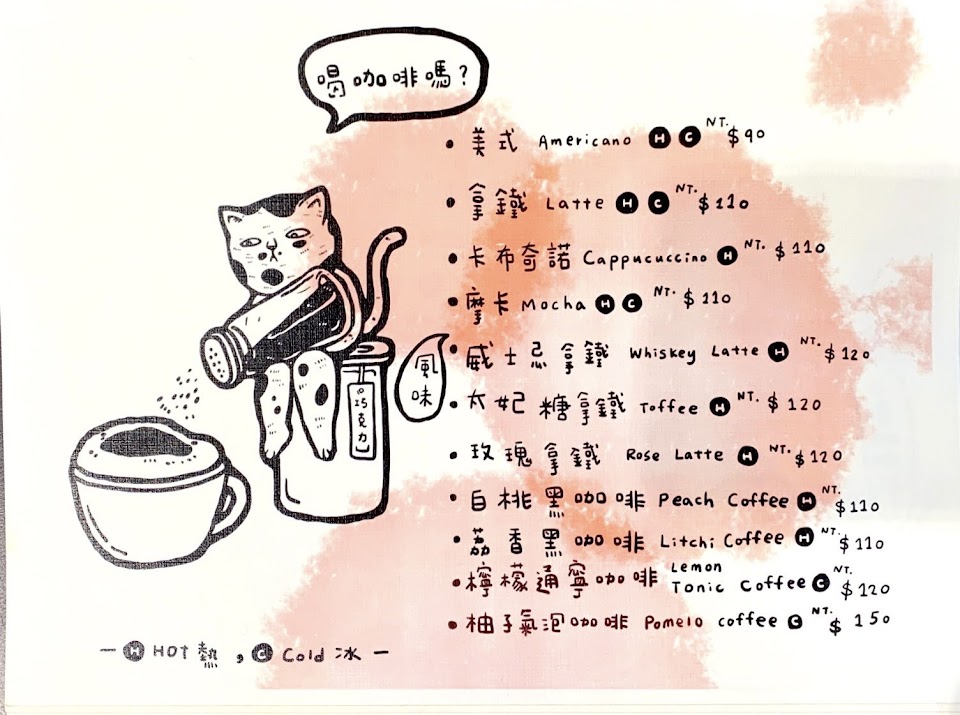 喝咖啡嗎?
• 美式 Americano H C NT. $90
• 拿鐵 Latte H C NT. $110
• 卡布奇諾 Cappucuccino H NT. $110
• 摩卡 Mocha H C NT. $110
風味
• 威士忌拿鐵 Whiskey Latte H NT. $120
• 太妃糖拿鐵 Toffee H NT. $120
• 玫瑰拿鐵 Rose Latte H NT. $120
• 白桃黑咖啡 Peach Coffee H NT. $110
• 荔香黑咖啡 Litchi Coffee H NT. $110
• 檸檬通寧咖啡 Lemon Tonic Coffee C NT. $120
• 柚子氣泡咖啡 Pomelo coffee C NT. $150
巧克力
— H HOT 熱 , C Cold 冰 —